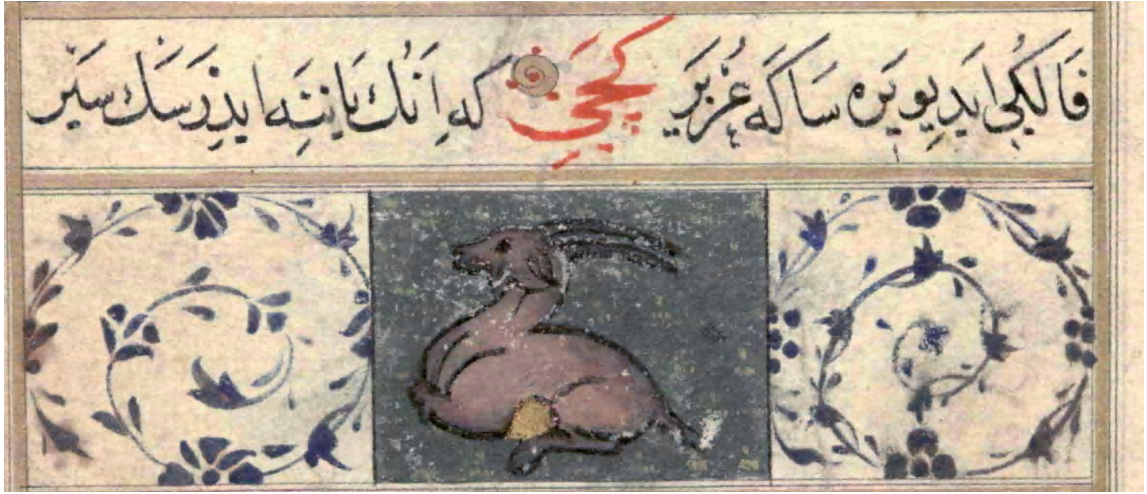 فَالُكِي اَيدِيوِيرَه سَاكَه عُزَيْر كَچِي كه اَنُك يَانِنَه ايدَرسَك سَيْر